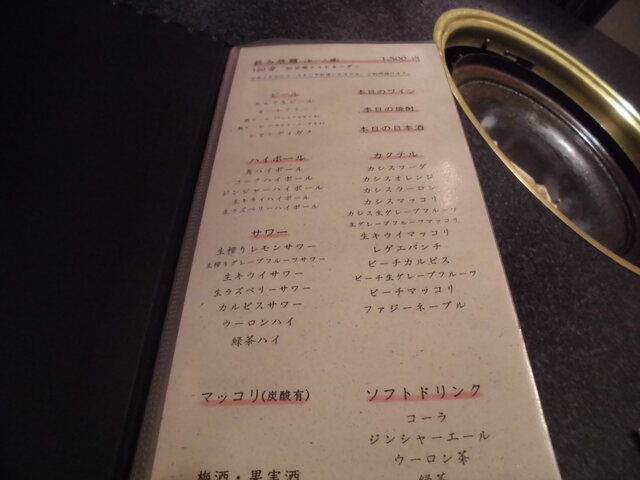 飲み放題
1,500円
ビール
本日のワイン
本日の焼酎
本日の日本酒
シャンディガフ
ハイボール
角ハイボール
コークハイボール
ジンジャーハイボール
生キウイハイボール
生ラズベリーハイボール
サワー
生搾りレモンサワー
生搾りグレープフルーツサワー
生キウイサワー
生ラズベリーサワー
カルピスサワー
ウーロンハイ
緑茶ハイ
カクテル
カシスソーダ
カシスオレンジ
カシスウーロン
カシスマッコリ
カシス生グレープフルーツ
生グレープフルーツマッコリ
生キウイマッコリ
レゲエパンチ
ピーチカルピス
ピーチ生グレープフルーツ
ピーチマッコリ
ファジーネーブル
マッコリ(炭酸有)
梅酒・果実酒
ソフトドリンク
コーラ
ジンジャーエール
ウーロン茶
緑茶